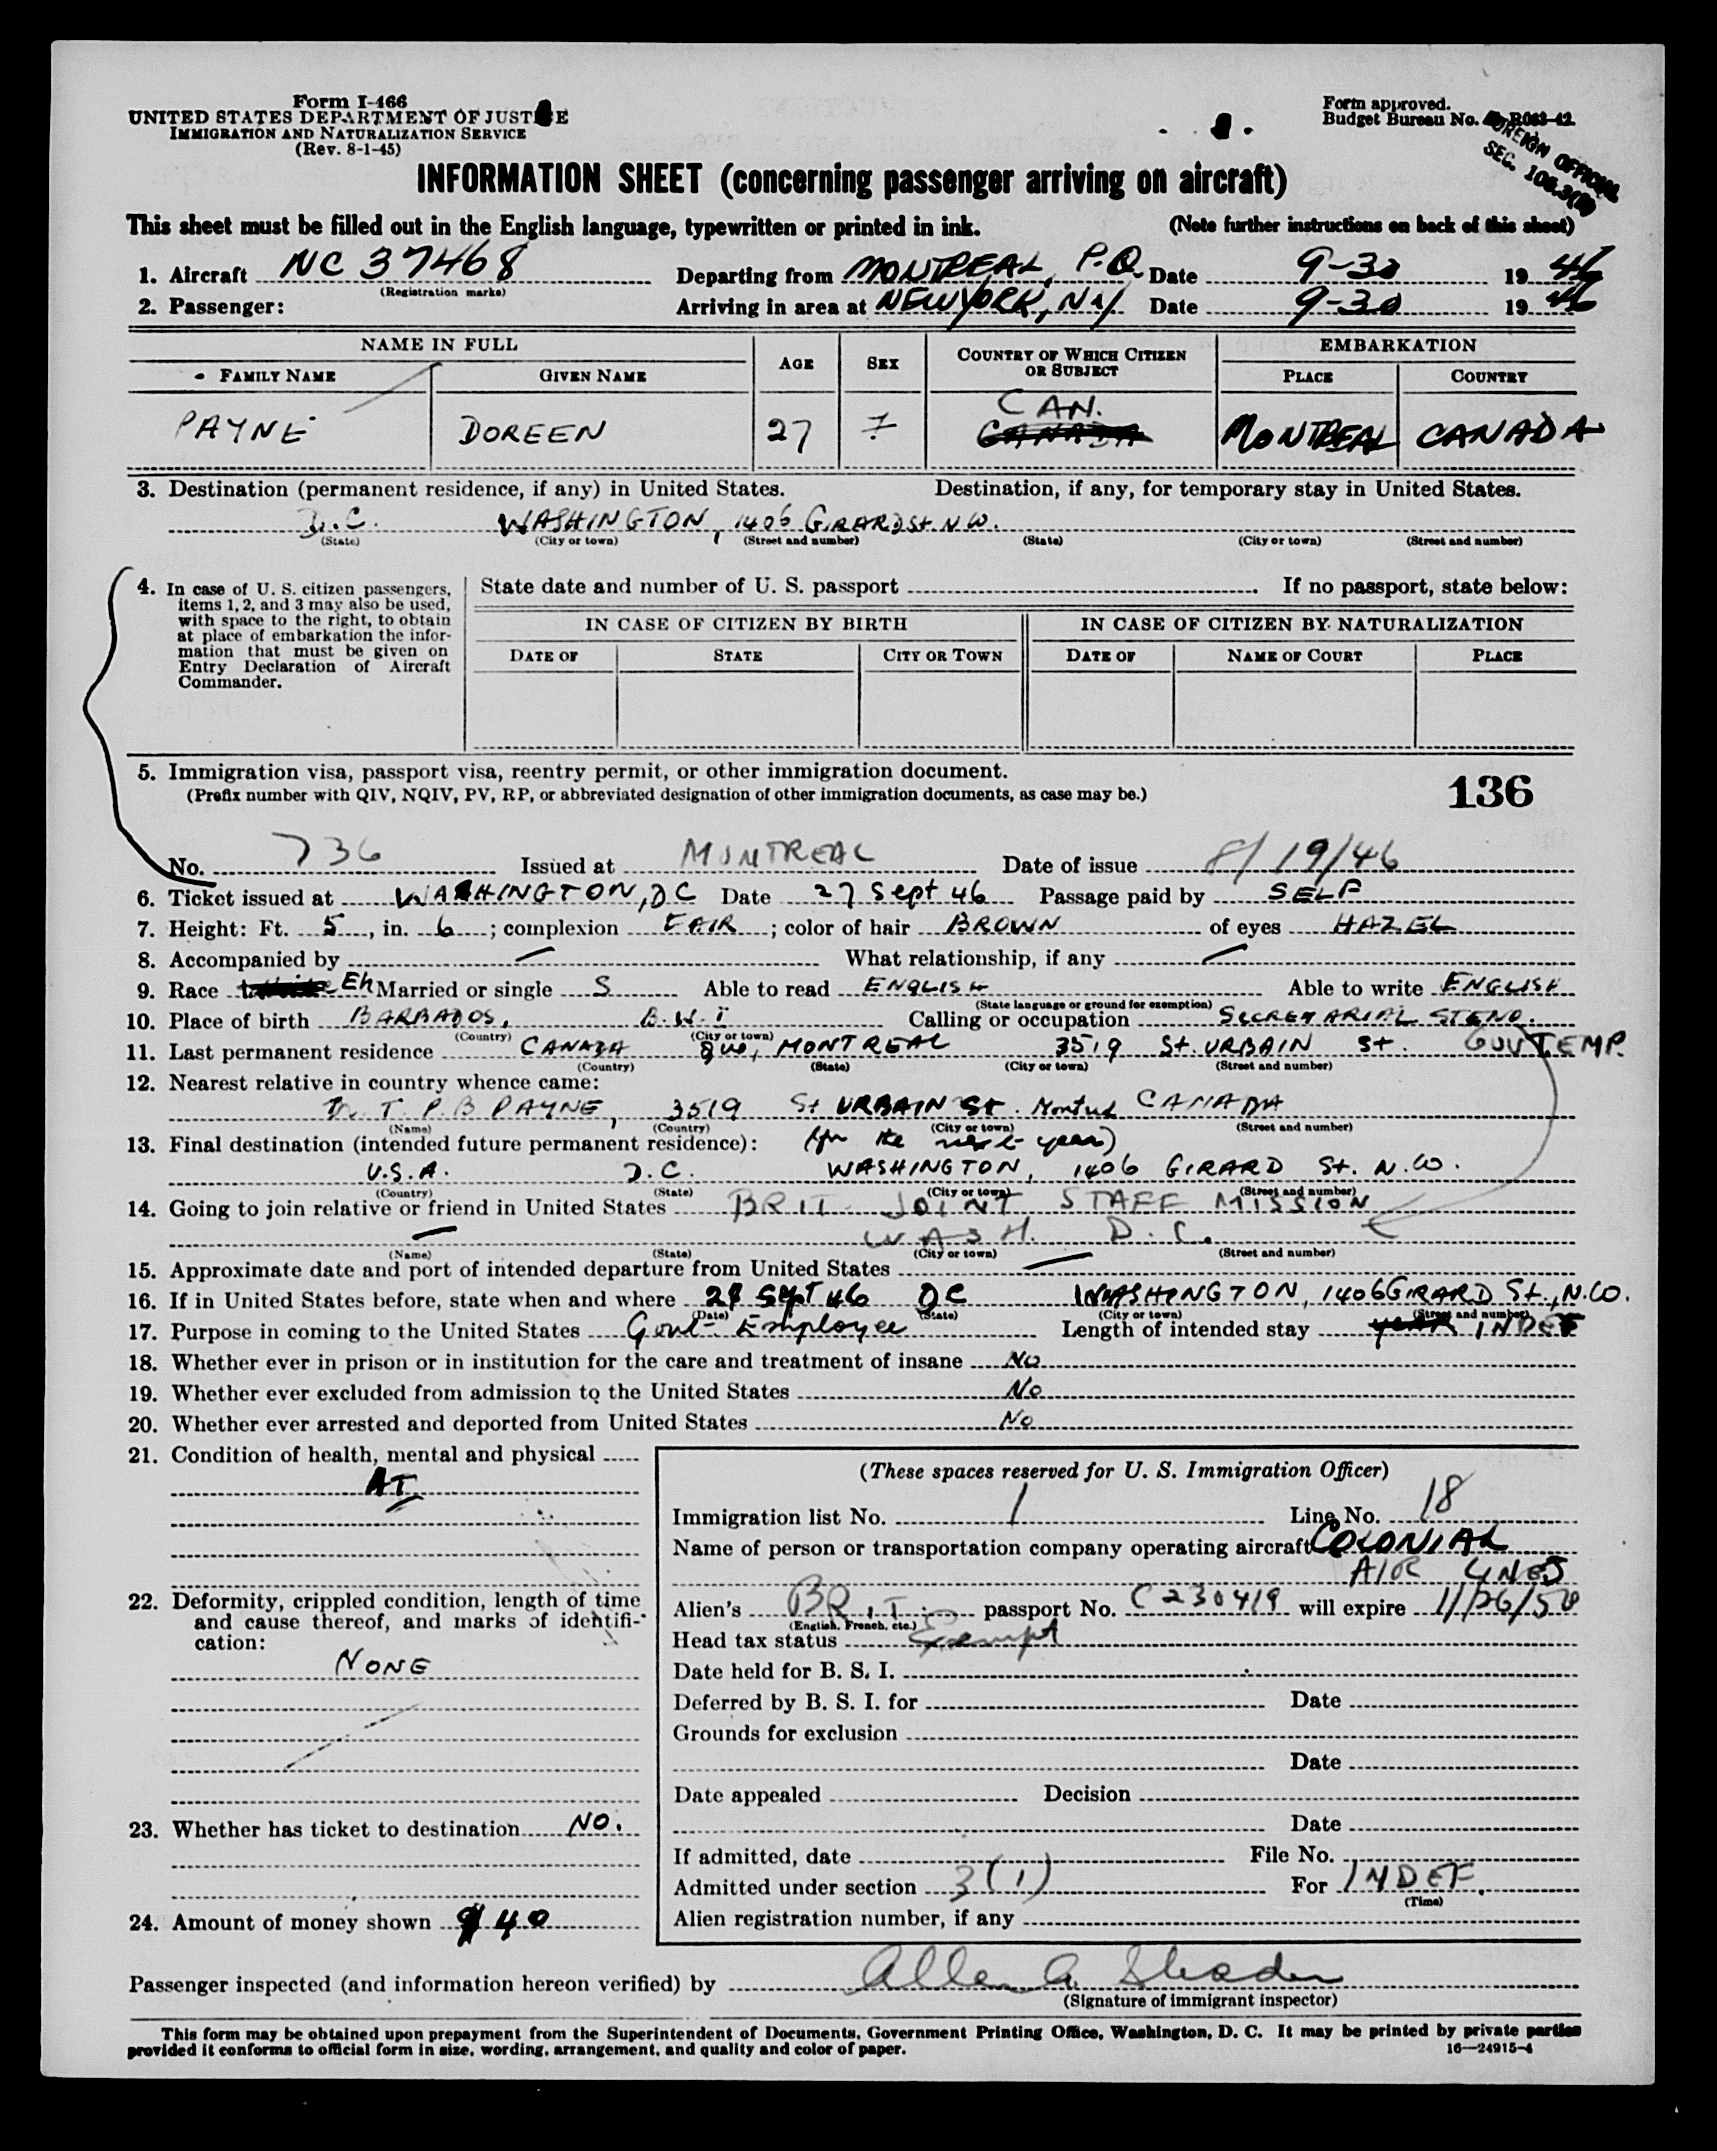 Form I-466
UNITED STATES DEPARTMENT OF JUSTICE
IMMIGRATION AND NATURALIZATION SERVICE
(Rev. 8-1-45)
Form approved.
Budget Bureau No.
FOREIGN OFFICIAL
SEC.
INFORMATION SHEET (concerning passenger arriving on aircraft)
This sheet must be filled out in the English language, typewritten or printed in ink. (Note further instructions on back of this sheet)
1. Aircraft NC 37468 Departing from MONTREAL, P.Q. Date 9-30 1946
(Registration marks)
2. Passenger: Arriving in area at NEW YORK, NY Date 9-30 1946
NAME IN FULL AGE SEX COUNTRY OF WHICH CITIZEN OR SUBJECT EMBARKATION
FAMILY NAME GIVEN NAME PLACE COUNTRY
CAN.
PAYNE DOREEN 27 F CANADA MONTREAL CANADA
3. Destination (permanent residence, if any) in United States. Destination, if any, for temporary stay in United States.
D.C. WASHINGTON, 1406 GIRARD St. N.W.
(State) (City or town) (Street and number) (State) (City or town) (Street and number)
4. In case of U. S. citizen passengers, items 1, 2, and 3 may also be used, with space to the right, to obtain at place of embarkation the information that must be given on Entry Declaration of Aircraft Commander.
State date and number of U. S. passport . If no passport, state below:
IN CASE OF CITIZEN BY BIRTH IN CASE OF CITIZEN BY NATURALIZATION
DATE OF STATE CITY OR TOWN DATE OF NAME OF COURT PLACE
5. Immigration visa, passport visa, reentry permit, or other immigration document.
(Prefix number with QIV, NQIV, PV, RP, or abbreviated designation of other immigration documents, as case may be.)
136
No. 736 Issued at MONTREAL Date of issue 8/19/46
6. Ticket issued at WASHINGTON, DC Date 27 Sept 46 Passage paid by SELF
7. Height: Ft. 5, in. 6; complexion FAIR; color of hair BROWN of eyes HAZEL
8. Accompanied by — What relationship, if any —
9. Race Married or single S Able to read ENGLISH Able to write ENGLISH
(State language or ground for exemption)
10. Place of birth BARBADOS, B.W.I Calling or occupation SECRETARIAL STENO.
(Country) (City or town)
11. Last permanent residence CANADA Que, MONTREAL 3519 St. URBAIN St. GOVT. EMP.
(Country) (State) (City or town) (Street and number)
12. Nearest relative in country whence came:
T. P. B PAYNE, 3519 St URBAIN St. CANADA
(Name) (Country) (City or town) (Street and number)
13. Final destination (intended future permanent residence): (for the next year)
U.S.A. D.C. WASHINGTON, 1406 GIRARD St. N.W.
(Country) (State) (City or town) (Street and number)
14. Going to join relative or friend in United States BRIT JOINT STAFF MISSION
— WASH. D.C.
(Name) (State) (City or town) (Street and number)
15. Approximate date and port of intended departure from United States —
16. If in United States before, state when and where Sept 46 DC WASHINGTON, 1406 GIRARD St., N.W.
(Date) (State) (City or town) (Street and number)
17. Purpose in coming to the United States Govt Employee Length of intended stay year INDEF
18. Whether ever in prison or in institution for the care and treatment of insane No
19. Whether ever excluded from admission to the United States No
20. Whether ever arrested and deported from United States No
21. Condition of health, mental and physical
AT
22. Deformity, crippled condition, length of time and cause thereof, and marks of identification:
NONE
23. Whether has ticket to destination NO.
24. Amount of money shown $40
(These spaces reserved for U. S. Immigration Officer)
Immigration list No. 1 Line No. 18
Name of person or transportation company operating aircraft COLONIAL
AIR LINES
Alien's BRIT. passport No. C230419 will expire
(English, French, etc.)
Head tax status Exempt
Date held for B. S. I.
Deferred by B. S. I. for Date
Grounds for exclusion
Date
Date appealed Decision
Date
If admitted, date File No.
Admitted under section 3(1) For INDEF.
(Time)
Alien registration number, if any
Passenger inspected (and information hereon verified) by
(Signature of immigrant inspector)
This form may be obtained upon prepayment from the Superintendent of Documents, Government Printing Office, Washington, D. C. It may be printed by private parties
provided it conforms to official form in size, wording, arrangement, and quality and color of paper. 16—24915-4